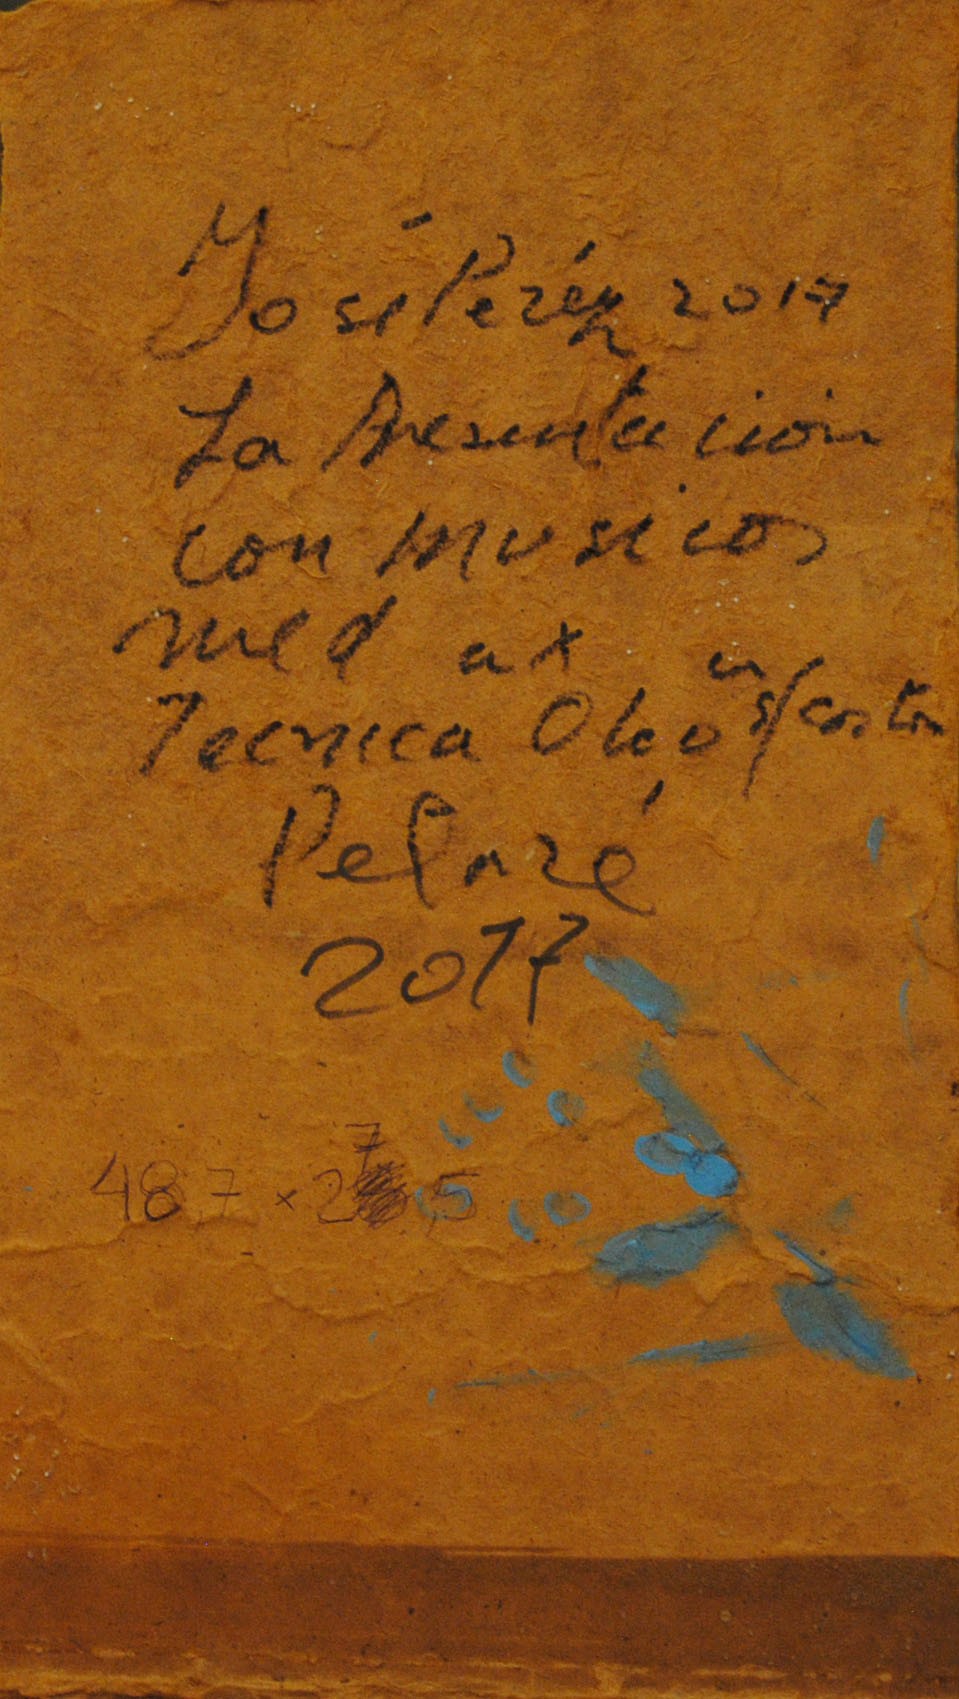 José Peréz 2017
La Presentación
con musicos
med x
Tecnica Oleo s/carton
2017
48,7 x 27,5